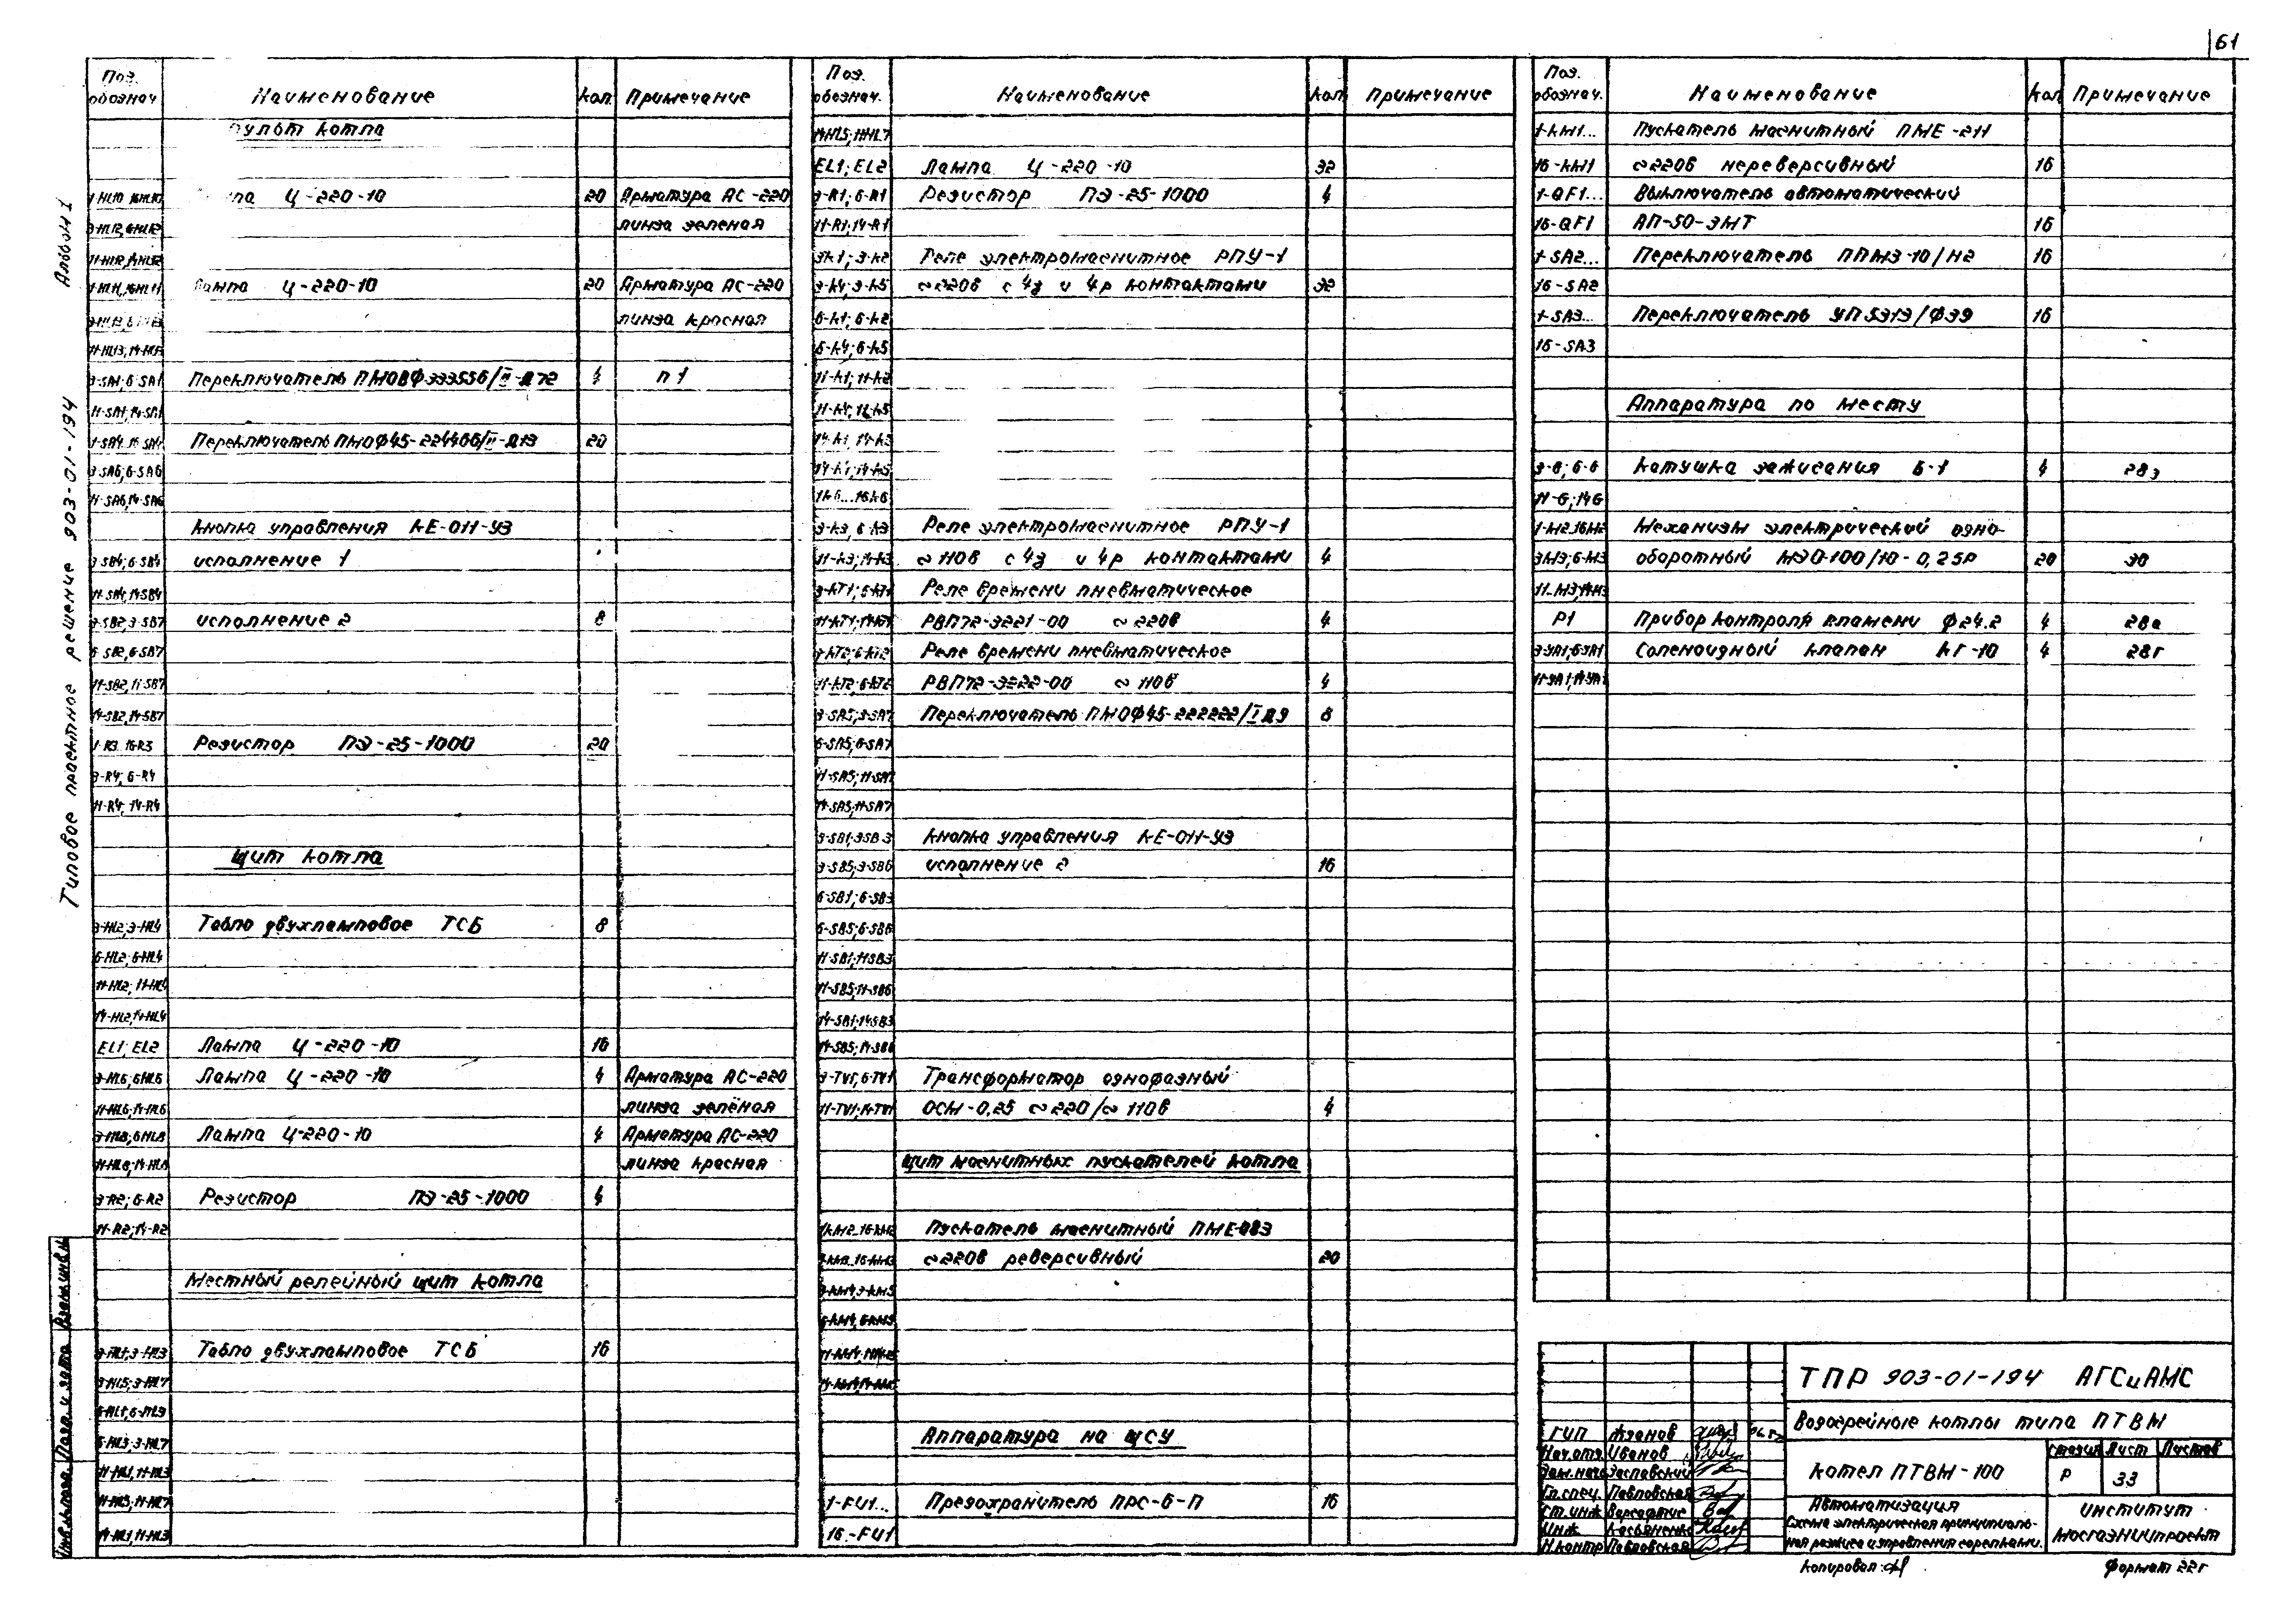 61
Альбом 1
Типовое проектное решение 903-01-194
Поз. обознач. Наименование Кол. Примечание
Пульт котла
1-HL10 16HL10 Ц-220-10 20 Арматура АС-220
линза зеленая
1-HL11, 16HL11 Лампа Ц-220-10 20 Арматура АС-220
линза красная
11-HL13; 14-HL13
3-SA1; 6-SA1 Переключатель 4 п1
11-SA1; 14-SA1
1-SA4..16 SA4 Переключатель ПМОФ45-224466/II-Д13 20
3-SA6; 6-SA6
11-SA6, 14-SA6
Кнопка управления КЕ-011-У3
3-SB4; 6-SB4 исполнение 1
11-SB4, 14SB4
3-SB2, 3-SB7 исполнение 2 8
6-SB2, 6-SB7
11-SB2, 11-SB7
14-SB2, 14-SB7
1-R3..16-R3 Резистор ПЭ-25-1000 20
3-R4; 6-R4
11-R4; 14-R4
Щит котла
3-HL2; 3-HL4 Табло двухламповое ТСБ 8
6-HL2; 6-HL4
11-HL2; 11-HL4
14-HL2, 14-HL4
EL1; EL2 Лампа Ц-220-10 16
3-HL6; 6HL6 Лампа Ц-220-10 4 Арматура АС-220
11-HL6; 14-HL6 линза зелёная
3-HL8; 6HL8 Лампа Ц-220-10 4 Арматура АС-220
11-HL8; 14-HL8 линза красная
3-R2; 6-R2 Резистор ПЭ-25-1000 4
11-R2; 14-R2
Местный релейный щит котла
3-HL1; 3-HL3 Табло двухламповое ТСБ 16
3-HL5; 3-HL7
6-HL1; 6-HL3
6-HL3; 3-HL7
11-HL1, 11-HL3
11-HL5; 11-HL7
14-HL1, 11-HL3
Поз. обознач. Наименование Кол Примечание
14HL5; 11HL7
EL1; EL2 Лампа Ц-220-10 32
3-R1; 6-R1 Резистор ПЭ-25-1000 4
11-R1; 14-R1
3К1; 3-К2 Реле электромагнитное РПУ-1
3-К4; 3-К5 ~220в с 4з и 4р контактами 32
6-К1; 6-К2
6-К4; 6-К5
11-К1; 11-К2
11-К4, 11-К5
14-К1, 14-К2
14-К4; 14-К5
1К6...16К6
3-К3, 6-К3 Реле электромагнитное РПУ-1
11-К3; 14-К3 ~110в с 4з и 4р контактами 4
3-КТ1; 6-КТ1 Реле времени пневматическое
11-КТ1; 14КТ1 РВП72-3221-00 ~220в 4
3-КТ2; 6-КТ2 Реле времени пневматическое
11-КТ2; 6-КТ2 РВП72-3222-00 ~110в 4
3-SA5; 3-SA7 Переключатель ПМОФ45-222222/I Д9 8
6-SA5; 6-SA7
11-SA5; 11-SA7
14-SA5; 11-SA7
3-SB1; 3SB3 Кнопка управления КЕ-011-У3
3-SB5; 3-SB6 исполнение 2 16
6-SB1; 6-SB3
6-SB5; 6-SB6
11-SB1; 11SB3
11-SB5; 11-SB6
14-SB1; 14SB3
14-SB5; 14-SB6
3-TV1, 6-TV1 Трансформатор однофазный
11-TV1; 14-TV1 ОСМ-0,25 ~220/~110в 4
Щит магнитных пускателей котла
1КМ2..16-КМ2 Пускатель магнитный ПМЕ-083
~220в реверсивный 20
3-КМ4, 3-КМ5
6-КМ4, 6-КМ5
Аппаратура на ЩСУ
1-FU1... Предохранитель ПРС-6-П 16
16.-FU1
Поз. обознач. Наименование Кол Примечание
1-КМ1... Пускатель магнитный ПМЕ-211
16-КМ1 ~220в нереверсивный 16
1-QF1... Выключатель автоматический
16-QF1 АП-50-3МТ 16
1-SA2... Переключатель ППМ3-10/Н2 16
16-SA2
1-SA3... Переключатель УП5313/Ф39 16
16-SA3
Аппаратура по месту
3-6; 6-6 Катушка зажигания Б-1 4 28з
11-G; 14G
1-М2..16М2 Механизм электрический одно-
3М3; 6-М3 оборотный МЭО-100/10-0,25Р 20 30
11..М3; 14М3
Р1 Прибор контроля пламени Ф24.2 4 28а
3-УА1; 6-УА1 Соленоидный клапан КГ-10 4 28г
11-УА1, 14УА1
ТПР 903-01-194 АГСиАМС
Водогрейные котлы типа ПТВМ
ГИП
Нач.отд. Иванов
Зам.нач. Заславский
Гл.спец. Павловская
Ст.инж
Инж Касьяненко
Н.контр Павловская
Котел ПТВМ-100
Стадия Лист Листов
Р 33
Автоматизация
Схема электрическая принципиаль-
ная розжига и управления горелками.
Институт
Мосгазниипроект
Инв.№подл. Подп. и дата Взам.инв.№
Копировал: Формат 22г